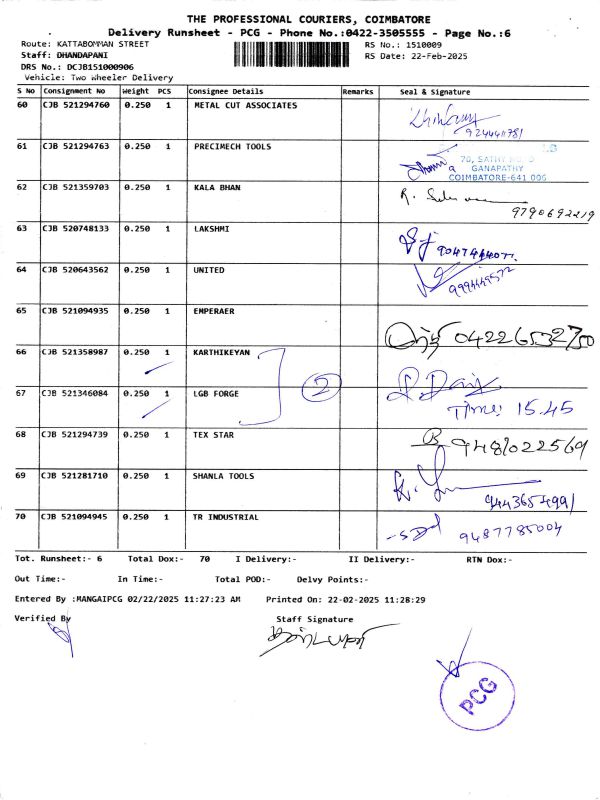 THE PROFESSIONAL COURIERS, COIMBATORE
Delivery Runsheet - PCG - Phone No.:0422-3505555 - Page No.:6
Route: KATTABOMMAN STREET
RS No.: 1510009
Staff: DHANDAPANI
RS Date: 22-Feb-2025
DRS No.: DCJB151000906
Vehicle: Two Wheeler Delivery
S No Consignment No Weight PCS Consignee Details Remarks Seal & Signature
60 CJB 521294760 0.250 1 METAL CUT ASSOCIATES
61 CJB 521294763 0.250 1 PRECIMECH TOOLS
70, SATHY
GANAPATHY
COIMBATORE-641 006
62 CJB 521359703 0.250 1 KALA BHAN
9790692219
63 CJB 520748133 0.250 1 LAKSHMI
64 CJB 520643562 0.250 1 UNITED
65 CJB 521094935 0.250 1 EMPERAER
04226532750
66 CJB 521358987 0.250 1 KARTHIKEYAN
2
67 CJB 521346084 0.250 1 LGB FORGE
Time: 15.45
68 CJB 521294739 0.250 1 TEX STAR
9481022569
69 CJB 521281710 0.250 1 SHANLA TOOLS
9443654991
70 CJB 521094945 0.250 1 TR INDUSTRIAL
9487785004
Tot. Runsheet:- 6 Total Dox:- 70 I Delivery:- II Delivery:- RTN Dox:-
Out Time:- In Time:- Total POD:- Delvy Points:-
Entered By :MANGAIPCG 02/22/2025 11:27:23 AM Printed On: 22-02-2025 11:28:29
Verified By Staff Signature
PCG